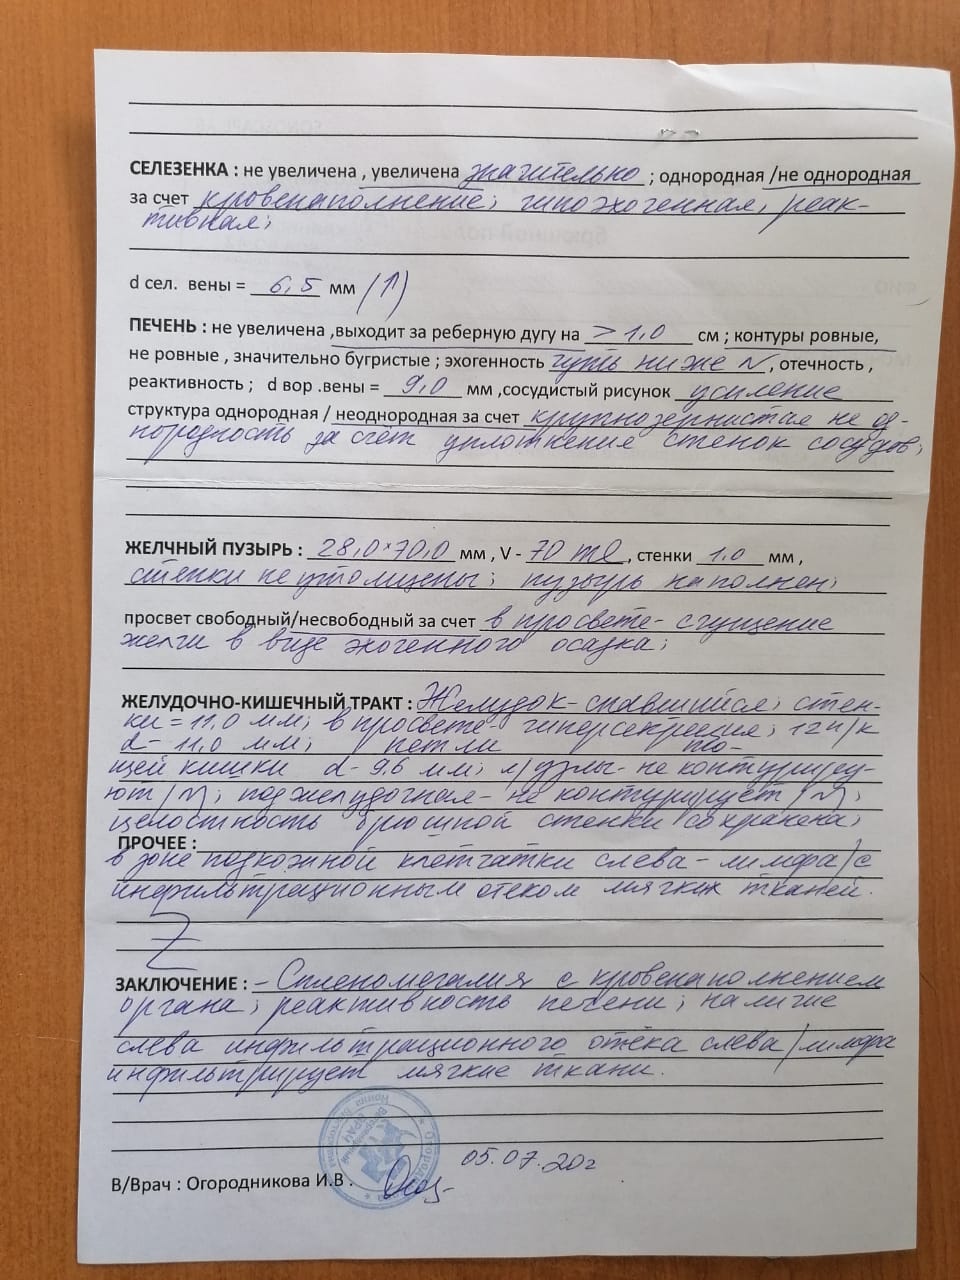 СЕЛЕЗЕНКА : не увеличена , увеличена значительно ; однородная /не однородная
за счет кровенаполнение; гипоэхогенная, реак-
тивная;
d сел. вены = 6,5 мм (↑)
ПЕЧЕНЬ : не увеличена ,выходит за реберную дугу на > 1,0 см ; контуры ровные,
не ровные , значительно бугристые ; эхогенность чуть ниже N , отечность ,
реактивность ; d вор .вены = 9,0 мм ,сосудистый рисунок усиление
структура однородная / неоднородная за счет крупнозернистая не од-
нородность за счёт уплотнения стенок сосудов;
ЖЕЛЧНЫЙ ПУЗЫРЬ : 28,0×70,0 мм , V - 70 ml , стенки 1,0 мм ,
стенки не утолщены; пузырь наполнен;
просвет свободный/несвободный за счет в просвете - сгущение
желчи в виде эхогенного осадка;
ЖЕЛУДОЧНО-КИШЕЧНЫЙ ТРАКТ : Желудок - спавшийся; стен-
ки = 11,0 мм; в просвете гиперсекреция; 12п/к
d - 11,0 мм; петли то-
щей кишки d - 9,6 мм; л/узлы - не контуриру-
ют /N/; поджелудочная - не контурирует /N/;
целостность брюшной стенки сохранена;
ПРОЧЕЕ :
в зоне подкожной клетчатки слева - лимфа/с
инфильтрационным отеком мягких тканей.
Z
ЗАКЛЮЧЕНИЕ : - Спленомегалия с кровенаполнением
органа; реактивность печени; наличие
слева инфильтрационного отёка слева/лимфа
инфильтрирует мягкие ткани.
05.07.20г
В/Врач : Огородникова И.В .